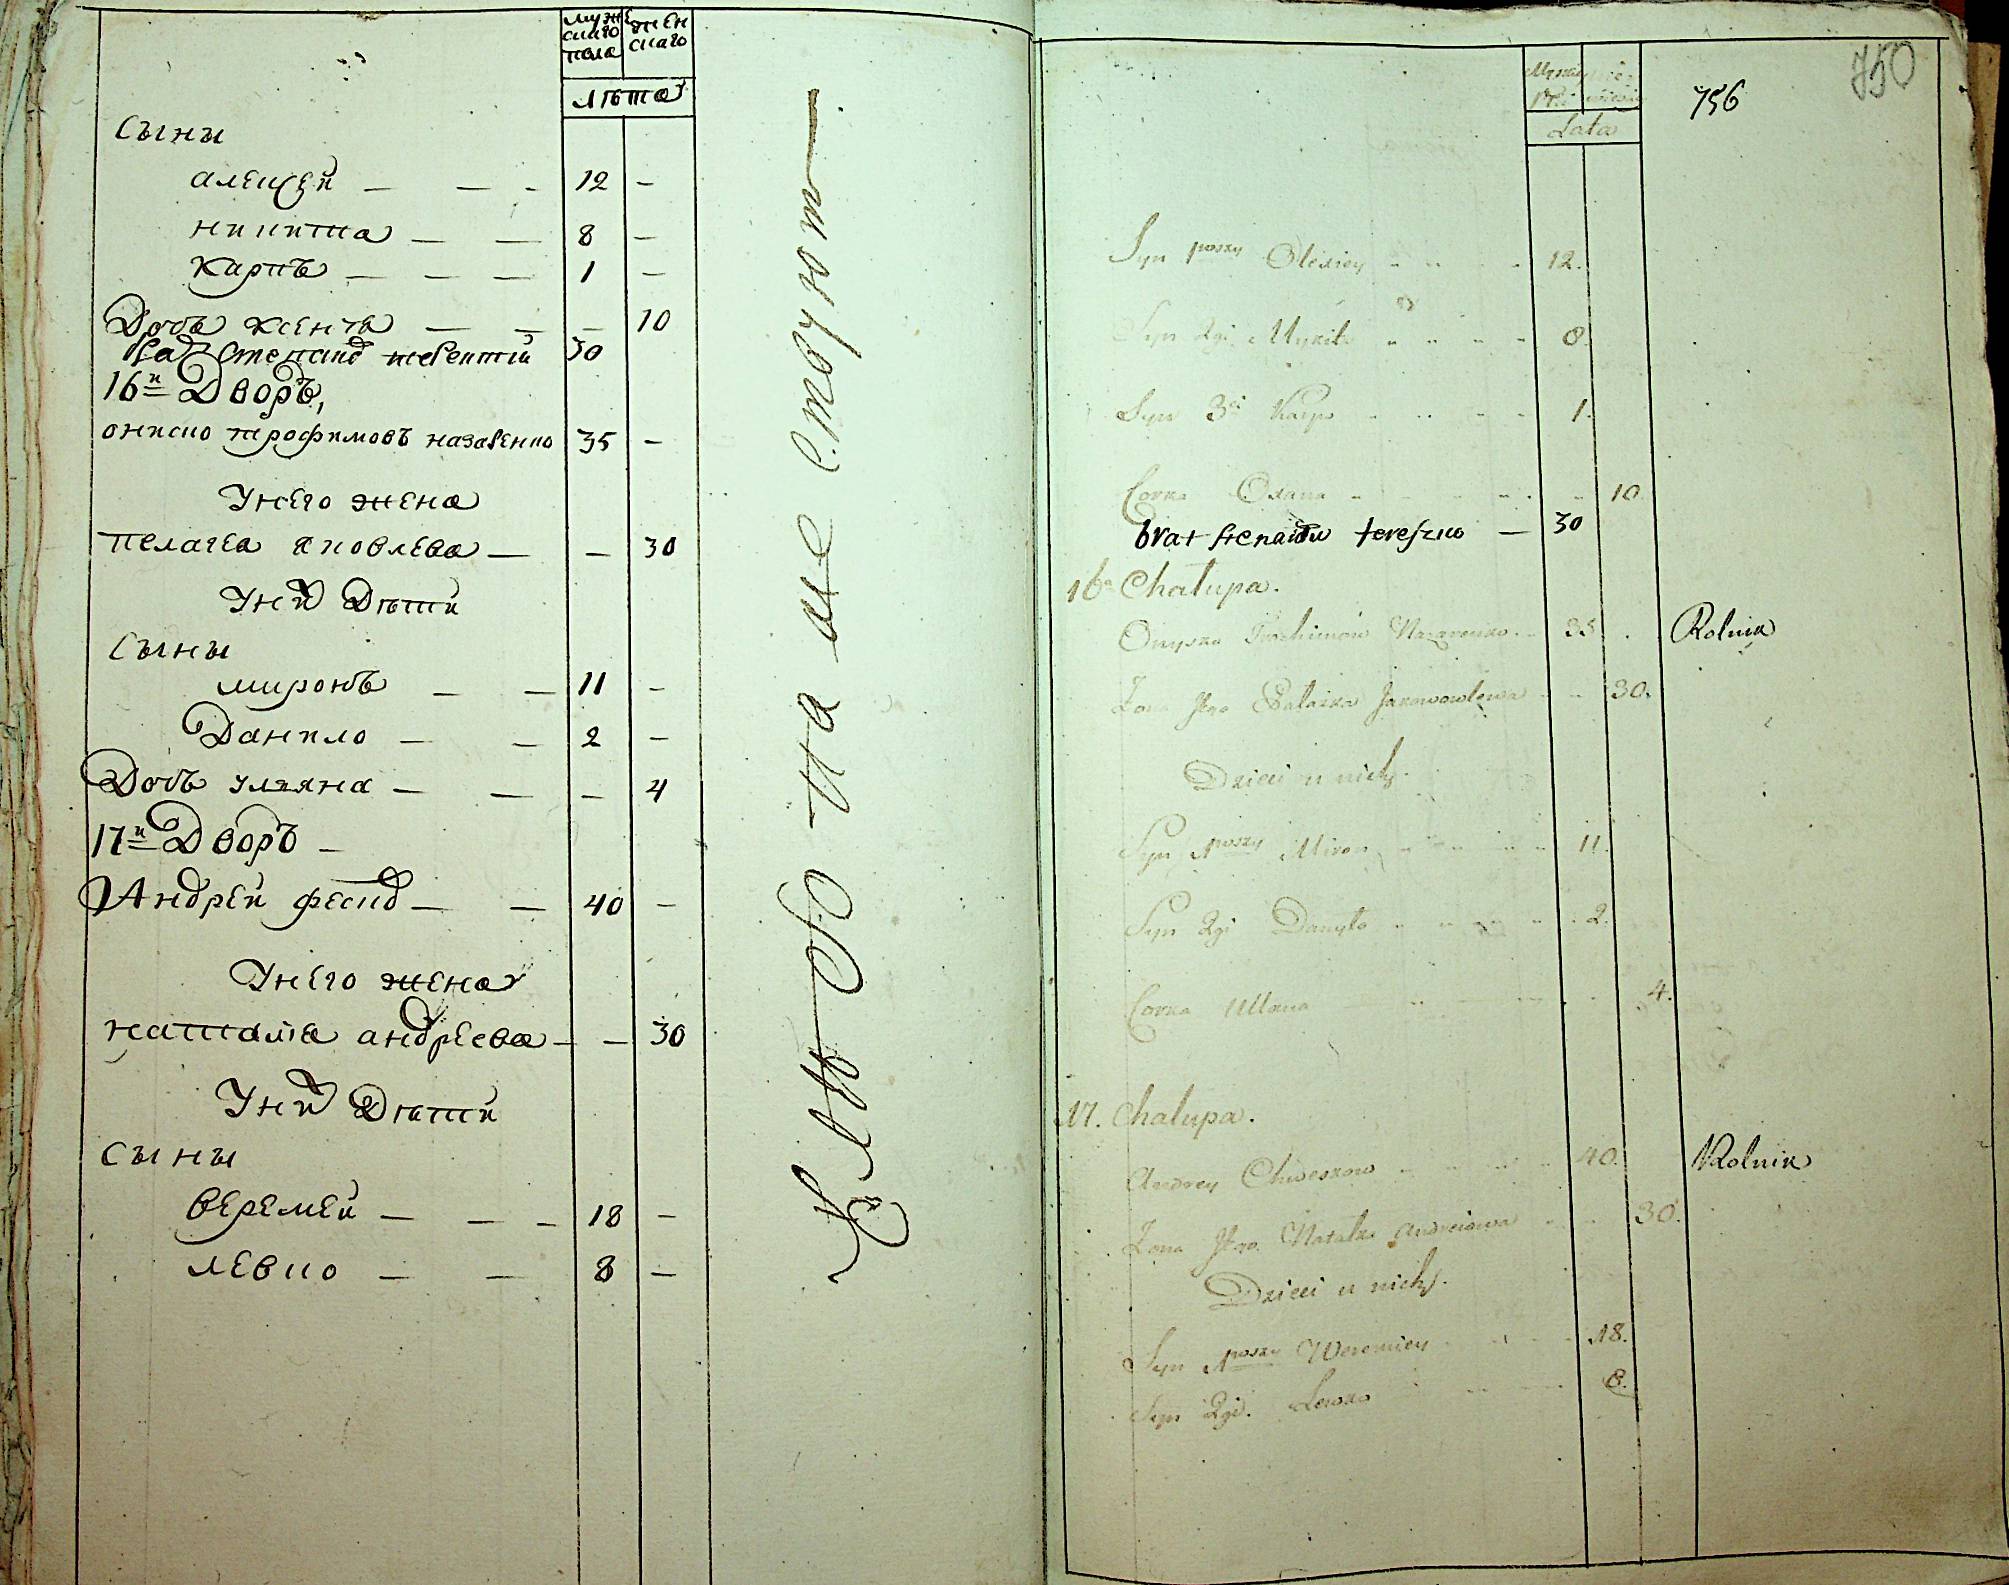 мужескаго пола женскаго
лѣта
Сыны
алеѯей — — - 12 -
никита — — 8 -
карпъ — — — 1 -
Дочь ксеня — — - 10
Степанъ терентій 30
16й Дворъ,
ониско трофимовъ назаренко 35 -
У него жена
пелагея яковлева — — 30
У ней Дѣти
Сыны
миронъ — — 11 -
Данило — — 2 -
Дочь уляна — — - 4
17й Дворъ -
Андрей феско — — 40 -
У него жена
наталія андреева — — 30
У ней Дѣти
Сыны
веремей — — - 18 -
левко — — 8 -
750
756
Lata
Syn 1wszy Olexiey 12.
Syn 2gi Mykita 8.
Syn 3ci Karpo 1.
Corka Oxana 10.
brat stepana tereszko — 30
16a Chałupa.
Onysko Trochimow Nazarenko 35. Rolnik
Zona Jego Pałazka Jakowowlewa 30.
Dzieci u nich.
Syn 1wszy Miron 11.
Syn 2gi Danyło 2.
Corka Ullana 4.
17. Chałupa.
Andrey Chweskow 40. Rolnik
Zona Jego Natalka Andreiowa 30.
Dzieci u nich.
Syn 1wszy Weremiey 18.
Syn 2gi. Lewko 8.